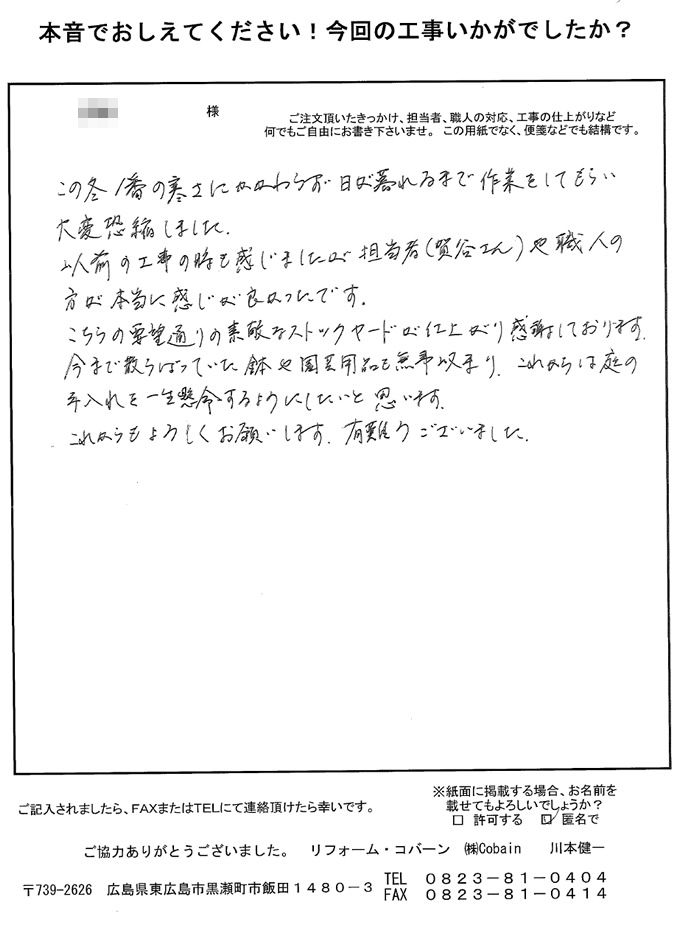 本音でおしえてください！今回の工事いかがでしたか？
様
ご注文頂いたきっかけ、担当者、職人の対応、工事の仕上がりなど
何でもご自由にお書き下さいませ。この用紙でなく、便箋などでも結構です。
この冬1番の寒さにかかわらず日が暮れるまで作業をしてもらい
大変恐縮しました。
以前の工事の時も感じましたが担当者(賀谷さん)や職人の
方が本当に感じが良かったです。
こちらの要望通りの素敵なストックヤードが仕上がり感謝しております。
今まで散らばっていた鉢や園芸用品も無事収まり、これからは庭の
手入れを一生懸命するようにしたいと思います。
これからもよろしくお願いします。有難うございました。
ご記入されましたら、FAXまたはTELにて連絡頂けたら幸いです。
※紙面に掲載する場合、お名前を
載せてもよろしいでしょうか？
□ 許可する ☑ 匿名で
ご協力ありがとうございました。 リフォーム・コバーン ㈱Cobain 川本健一
〒739-2626 広島県東広島市黒瀬町市飯田１４８０－３
TEL ０８２３－８１－０４０４
FAX ０８２３－８１－０４１４